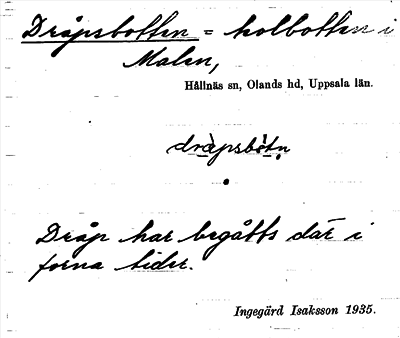 Dråpsbotten = kolbotten i
Malen,
Hållnäs sn, Olands hd, Uppsala län.
dråpsbòtn̥
Dråp har begåtts där i
forna tider.
Ingegärd Isaksson 1935.